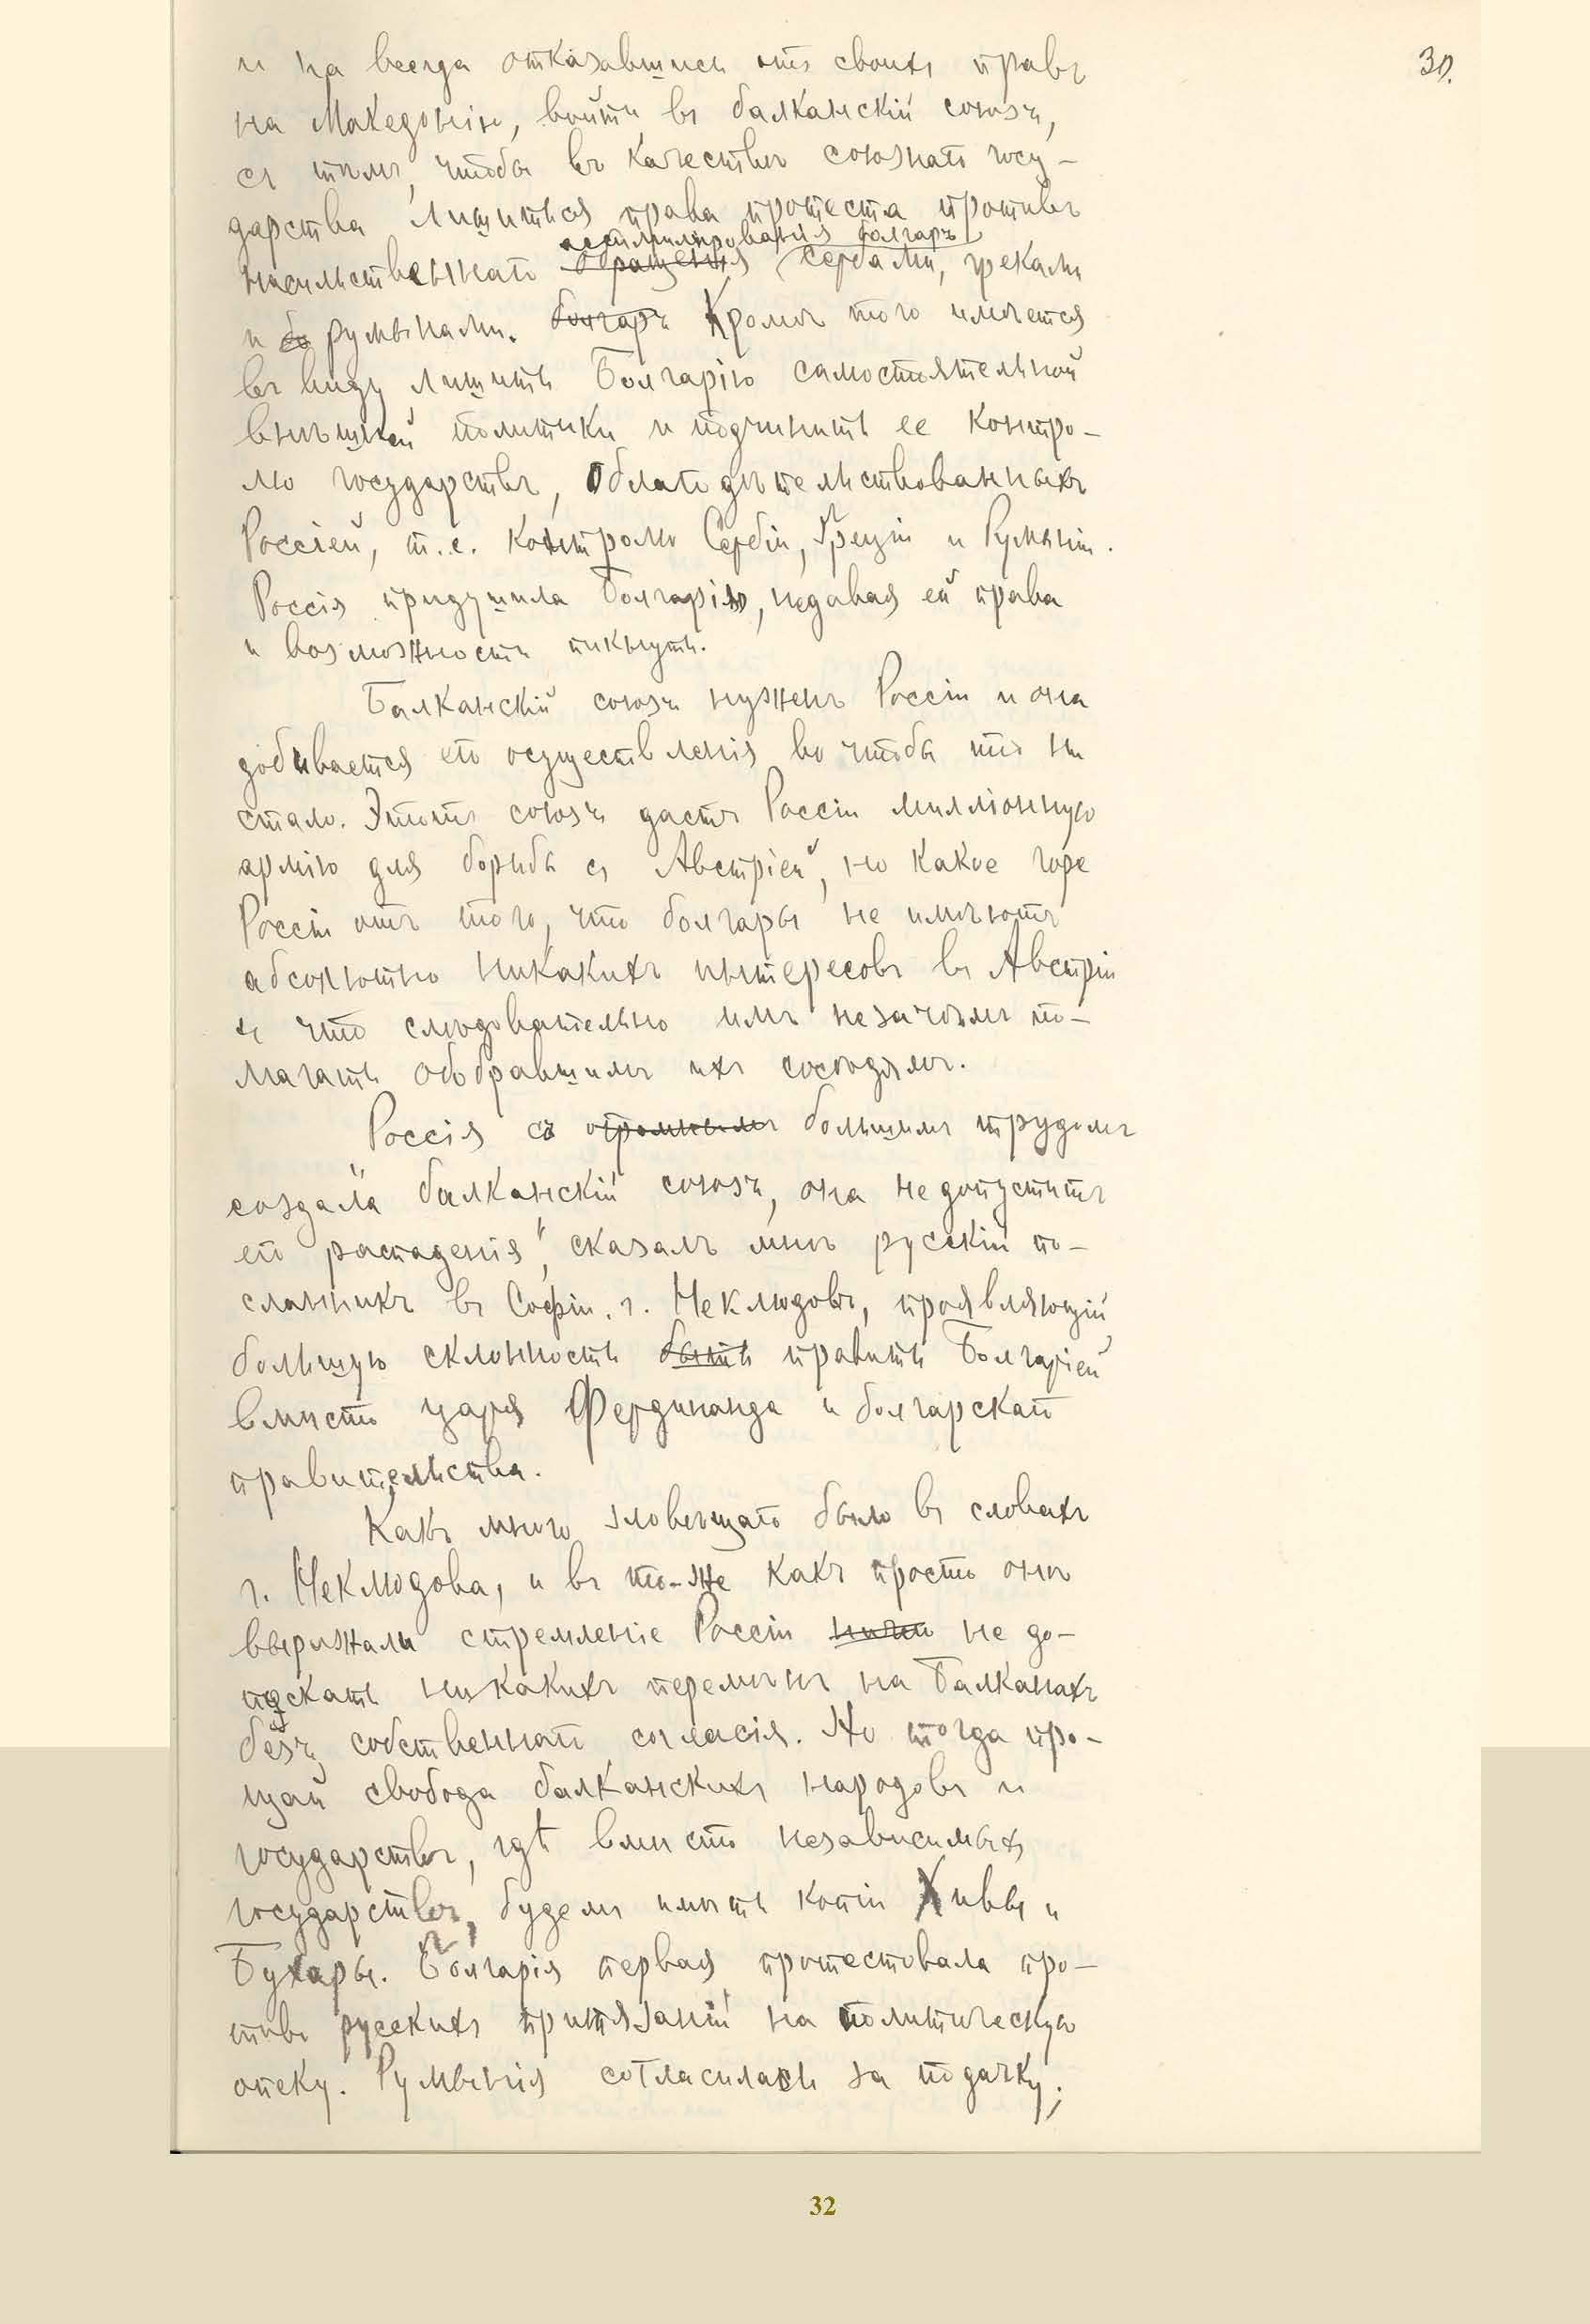 30.
и на всегда отказавшись отъ своихъ правъ
на Македонію, войти въ балканскій союзъ,
съ тѣмъ, чтобы въ качествѣ союзнаго госу-
дарства лишиться права протеста противъ
ассимилированія болгаръ
насильственнаго обращенія сербами, греками
и бо румынами. болгаръ Кромѣ того имѣется
въ виду лишить Болгарію самостоятельной
внѣшней политики и подчинить ее контро-
лю государствъ, облагодѣтельствованныхъ
Россіей, т.е. контролю Сербіи, Греціи и Румыніи.
Россія придушила Болгарію, недавая ей права
и возможности пикнуть.
Балканскій союзъ нуженъ Россіи и она
добивается его осуществленія во чтобы то ни
стало. Этотъ союзъ дастъ Россіи милліонную
армію для борьбы съ Австріей, но какое горе
Россіи отъ того, что болгары не имѣютъ
абсолютно никакихъ интересовъ въ Австріи
и что слѣдовательно имъ незачѣмъ по-
магать обобравшимъ ихъ сосѣдямъ.
Россія съ огромнымъ большимъ трудомъ
создала балканскій союзъ, она не допуститъ
его распаденія", сказалъ мнѣ русскій по-
сланникъ въ Софіи. г. Неклюдовъ, проявляющій
большую склонность быть править Болгаріей
вмѣсто царя Фердинанда и болгарскаго
правительства.
Какъ много зловѣщаго было въ словахъ
г. Неклюдова, и въ то-же какъ просто они
выражали стремленіе Россіи ничего не до-
пускать никакихъ перемѣнъ на Балканахъ
безъ собственнаго согласія. Но тогда про-
щай свобода балканскихъ народовъ и
государствъ, гдѣ вмѣсто независимыхъ
государствъ, будемъ имѣть копіи Хивы и
Бухары. Болгарія первая протестовала про-
тивъ русскихъ притязаній на политическую
опеку. Румынія согласилась за подачку;
32